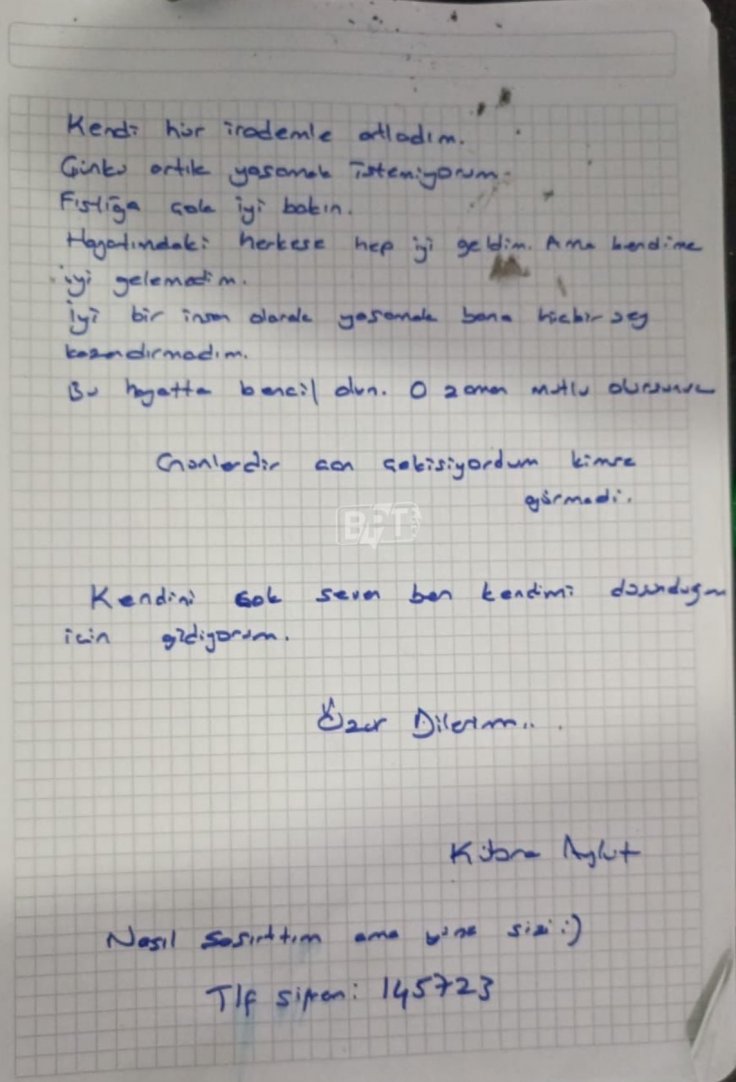 Kendi hür irademle atladım.
Çünkü artık yaşamak istemiyorum.
Fıstığa çok iyi bakın.
Hayatımdaki herkese hep iyi geldim. Ama kendime
iyi gelemedim.
İyi bir insan olarak yaşamak bana hiçbir şey
kazandırmadım.
Bu hayatta bencil olun. O zaman mutlu olursunuz
Günlerdir can çekişiyordum kimse
görmedi.
BPT
Kendini çok seven ben kendimi düşündüğüm
için gidiyorum.
Özür Dilerim...
Aykut
Nasıl şaşırttım ama yine sizi :)
Tlf şifrem: 145723